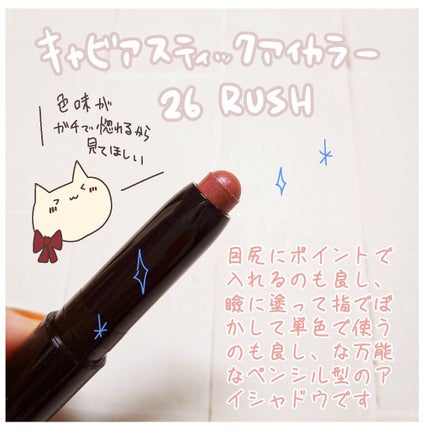 キャビアスティックアイカラー
26 RUSH
色味が
ガチで惚れるから
見てほしい
目尻にポイントで
入れるのも良し、
瞼に塗って指でぼ
かして単色で使う
のも良し、な万能
なペンシル型のア
イシャドウです